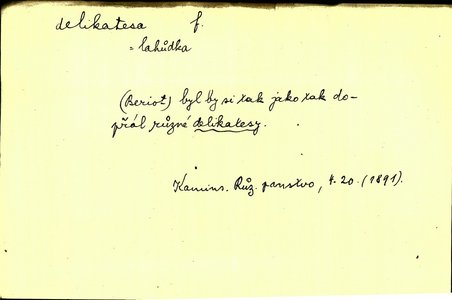 delikatesa f.
= lahůdka
(Beriot) byl by si tak jako tak do-
přál různé delikatesy.
Kamins. Růž. panstvo, 4. 20. (1891).